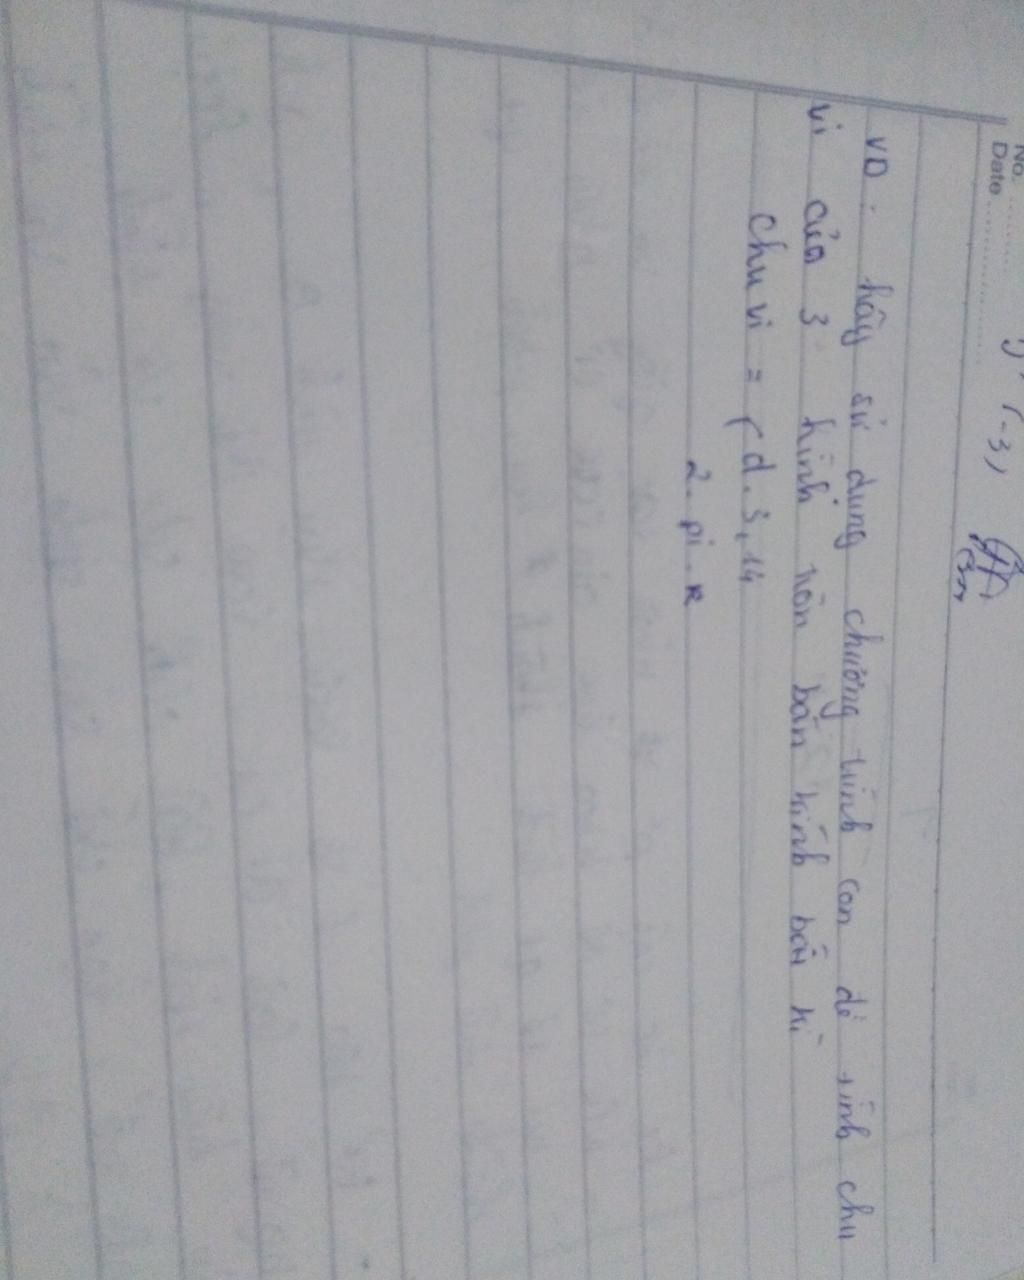 No.
Date
VD. hãy sử dụng chương trình con để tính chu
vi của 3 hình tròn bán kính bất kì
chu vi = r d. 3,14
2. pi. R